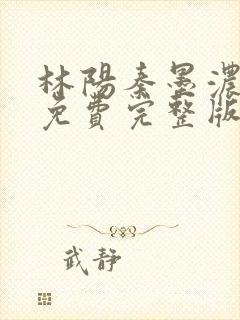 林陽秦墨濃
免費完整版
武靜